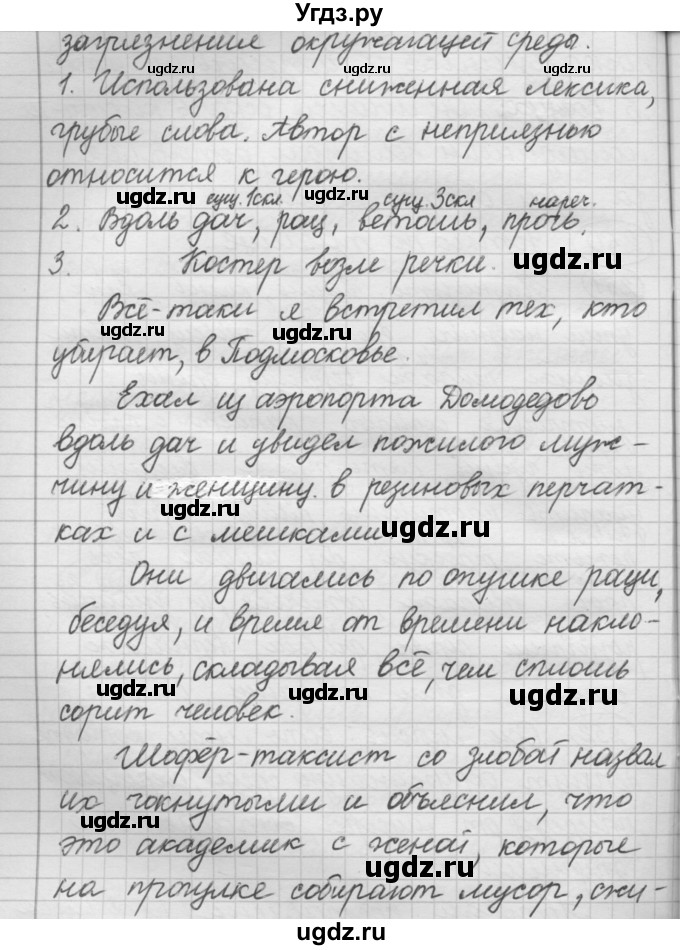 Угдз.ру
загрязнения окружающей среды.
1. Использована сниженная лексика,
грубые слова. Автор с неприязнью
относится к герою.
сущ. 1скл. сущ. 3скл нареч.
2. Вдоль дач, рощ, ветошь, прочь.
3. Костер возле речки.
Всё-таки я встретил тех, кто
убирает, в Подмосковье.
Ехал из аэропорта Домодедово
вдоль дач и увидел пожилого муж-
чину и женщину в резиновых перчат-
ках и с мешками
Они двигались по опушке рощи,
беседуя, и время от времени накло-
нялись, складывая всё, чем сплошь
сорит человек.
Шофёр-таксист со злобой назвал
их чокнутыми и объяснил, что
это академик с женой, которые
на прогулке собирают мусор, сжи-
ugdz.ru